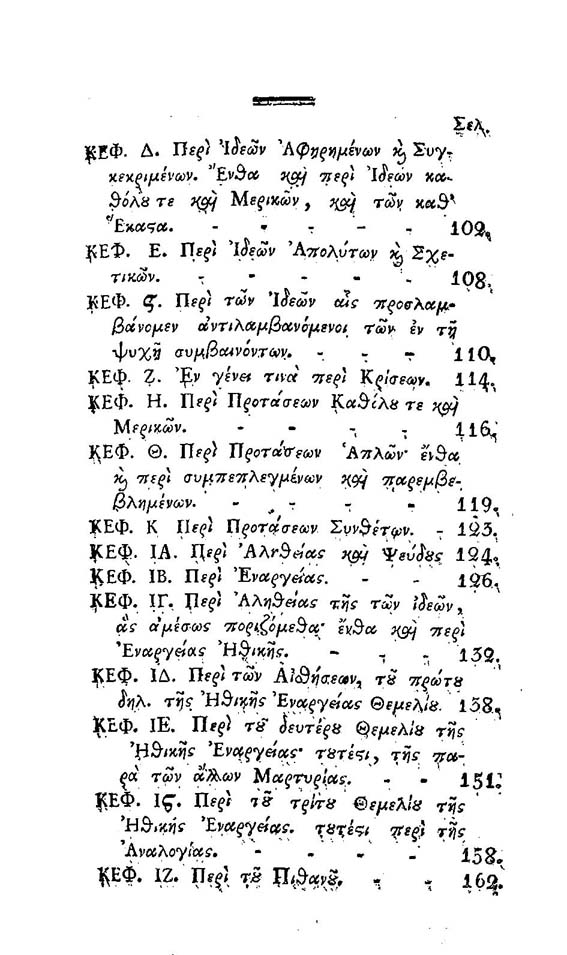 Σελ.
ΚΕΦ. Δ. Περὶ Ἰδεῶν Ἀφῃρημένων ϗ Συγ-
κεκριμένων. Ἔνθα καὶ περὶ Ἰδεῶν κα-
θόλȣ τε καὶ Μερικῶν, καὶ τῶν καθ'
Ἕκαϛα. - - - - - - 102.
ΚΕΦ. Ε. Περὶ Ἰδεῶν Ἀπολύτων ϗ Σχε-
τικῶν. - - - - - 108.
ΚΕΦ. Ϛ. Περὶ τῶν Ἰδεῶν αἷς προσλαμ-
βάνομεν ἀντιλαμβανόμενοι τῶν ἐν τῇ
ψυχῇ συμβαινόντων. - - - 110.
ΚΕΦ. Ζ. Ἐν γένει τινὰ περὶ Κρίσεων. 114.
ΚΕΦ. Η. Περὶ Προτάσεων Καθόλȣ τε καὶ
Μερικῶν. - - - - 116.
ΚΕΦ. Θ. Περὶ Προτάσεων Ἁπλῶν· ἔνθα
ϗ περὶ συμπεπλεγμένων καὶ παρεμβε-
βλημένων. - - - - 119.
ΚΕΦ. Κ Περὶ Προτάσεων Συνθέτων. - 123.
ΚΕΦ. ΙΑ. Περὶ Ἀληθείας καὶ Ψεύδȣς 124.
ΚΕΦ. ΙΒ. Περὶ Ἐναργείας. - - 126.
ΚΕΦ. ΙΓ. Περὶ Ἀληθείας τῆς τῶν ἰδεῶν,
ἃς ἀμέσως ποριζόμεθα· ἔνθα καὶ περὶ
Ἐναργείας Ἠθικῆς. - - - 132.
ΚΕΦ. ΙΔ. Περὶ τῶν Αἰσθήσεων, τȣ͂ πρώτȣ
δηλ. τῆς Ἠθικῆς Ἐναργείας Θεμελίȣ. 138.
ΚΕΦ. ΙΕ. Περὶ τȣ͂ δευτέρȣ Θεμελίȣ τῆς
Ἠθικῆς Ἐναργείας· τȣτέϛι, τῆς πα-
ρὰ τῶν ἄλλων Μαρτυρίας. - - 151.
ΚΕΦ. ΙϚ. Περὶ τȣ͂ τρίτȣ Θεμελίȣ τῆς
Ἠθικῆς Ἐναργείας. τȣτέϛι περὶ τῆς
Ἀναλογίας. - - - - 158.
ΚΕΦ. ΙΖ. Περὶ τȣ͂ Πιθανȣ͂. - - 162.